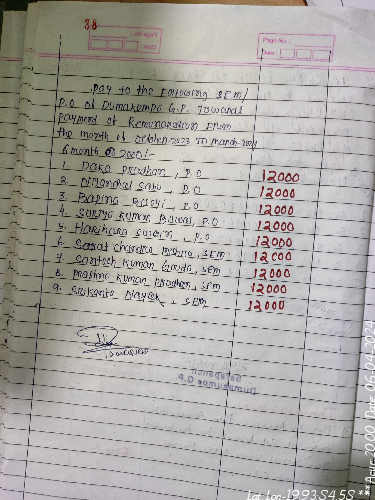 38
Page No.:
Date:
pay to the Following SEM/
P.O of Dumakempa G.P. Towards
payment of Remunaration From
the month of October-2023 To March-2024
6 month @ 2000/-
1. Daka prodhan, P.O 12000
2. Dinanchal Sahu, P.O 12000
3. P.O 12000
4. Surya Kumar Biswal, P.O 12000
5. Harihara P.O 12000
6. Sarat chandra mishra, SEM 12000
7. Santosh Kumar Gouda, SEM 12000
8. Kumar prodhan, SEM 12000
9. Srikanta Nayak, SEM 12000
Sarapanch
G.P.
Lat Lon-1993.S4.5S
*** Acur-20.00 Date 06-04-2024